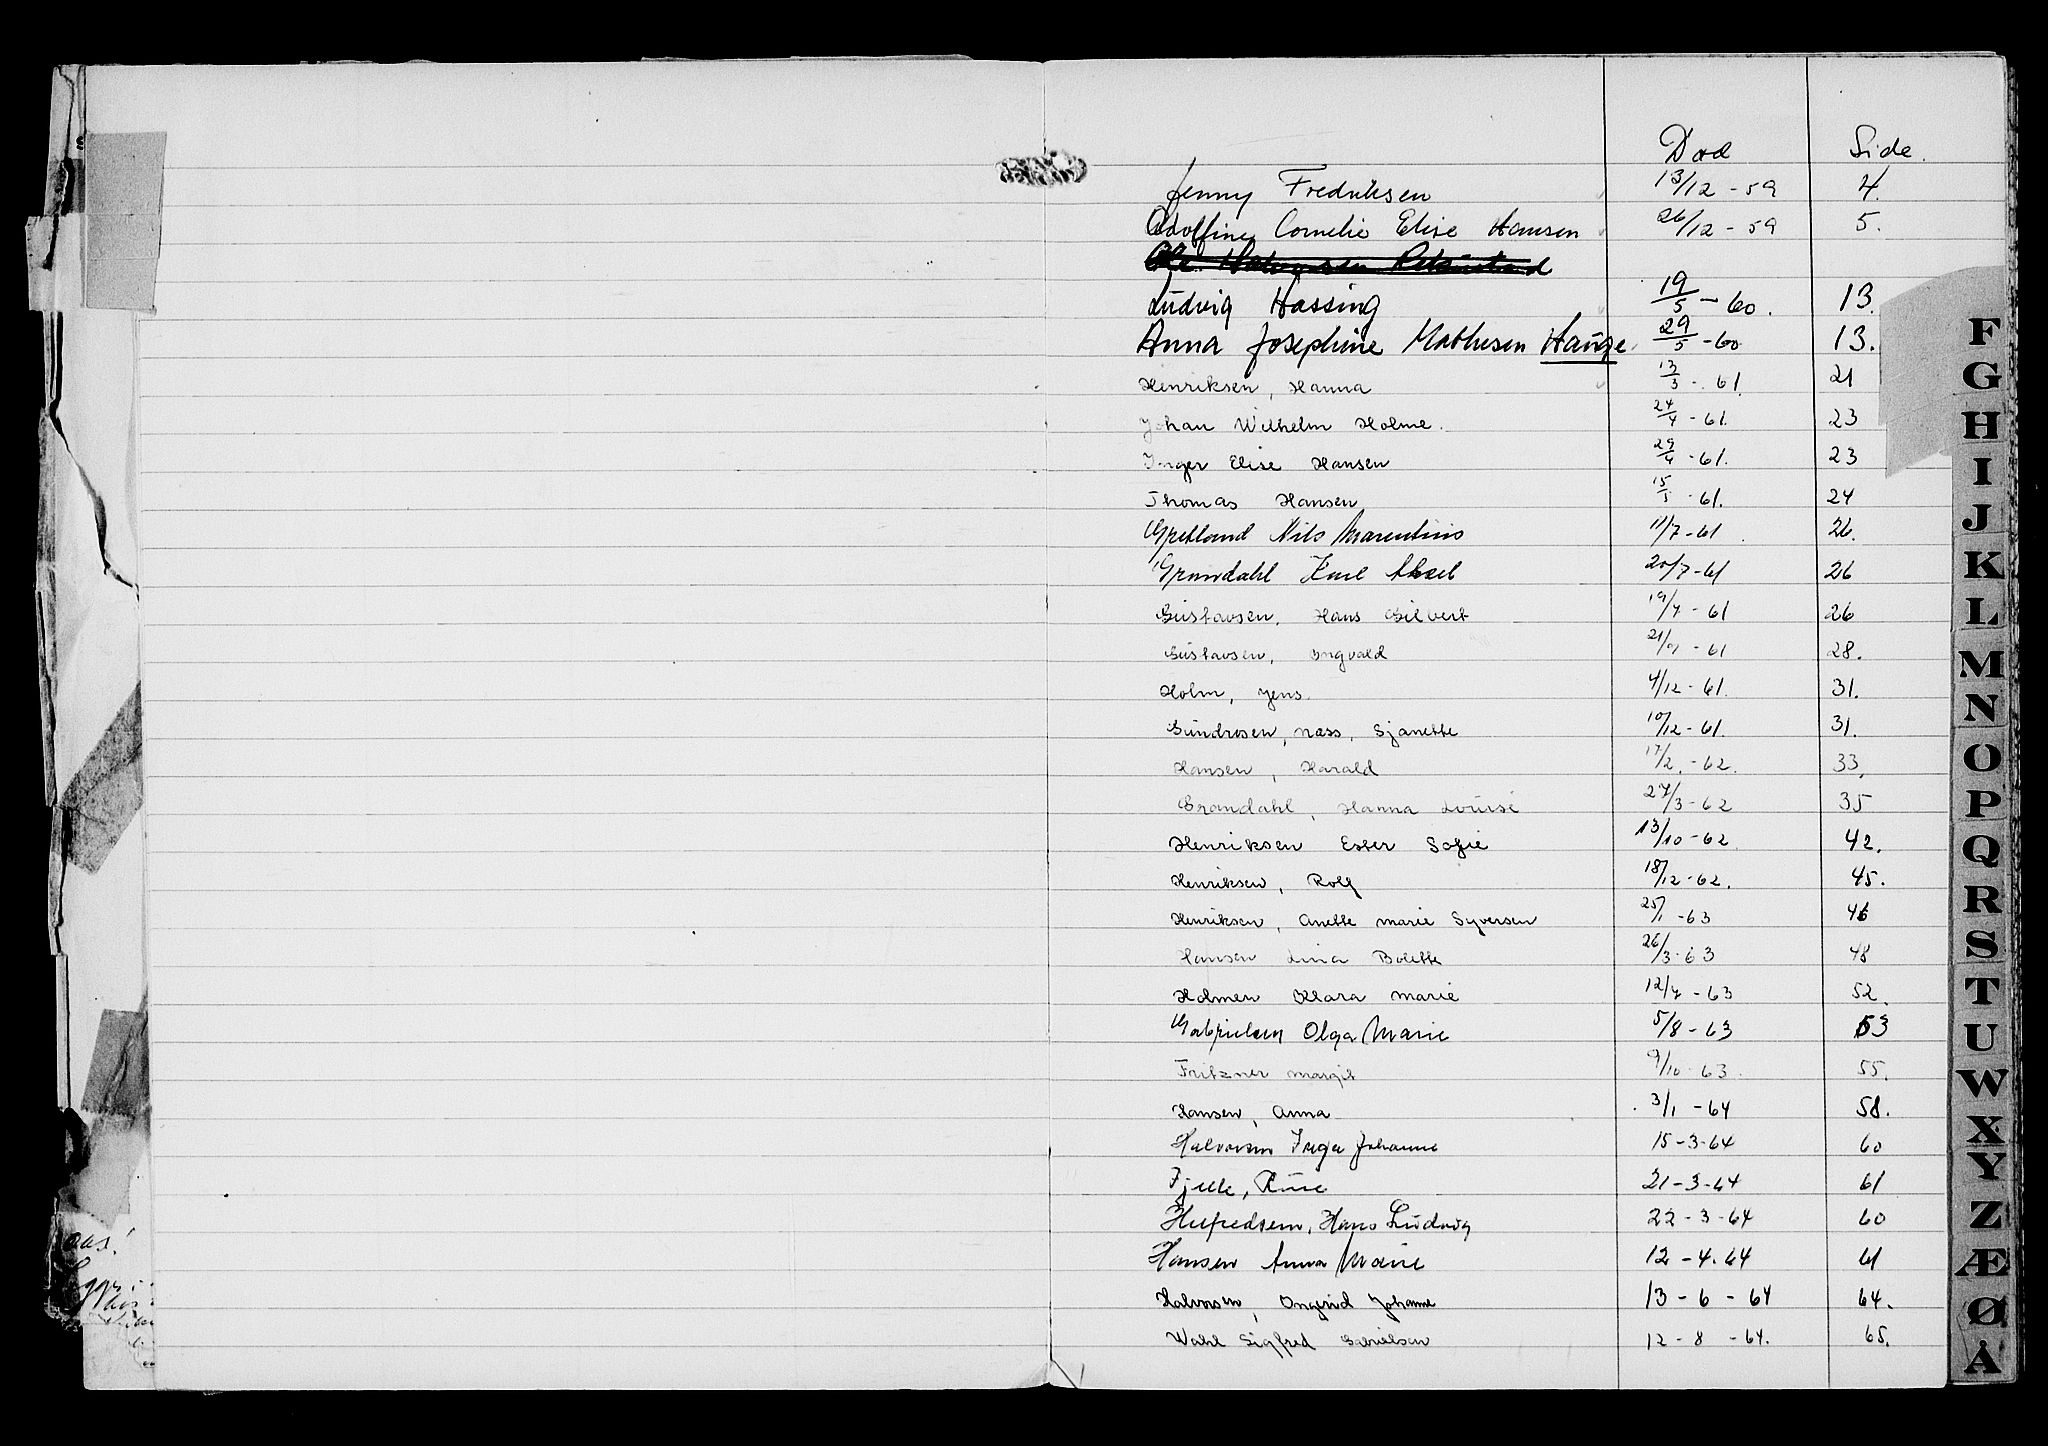 Død Side.
Jenny Fredriksen 13/12 - 59 4.
Adolfine Cornelie Elise Hansen 26/12 - 59 5.
Ludvig Hassing 19/5 - 60. 13.
Anna Josephine Mathisen Hauge 29/5 - 60 13.
Henriksen, Hanna 13/3 - 61 21
Johan Wilhelm Holme. 24/4 - 61. 23
Inger Elise Hansen 29/4 - 61. 23
Thomas Hansen 15/5 - 61. 24
Gretland Nils Marentinis 11/7 - 61 26.
Grøndahl Karl Aksel 20/7 - 61 26
Gustavsen, Hans Gilbert 19/7 - 61 26
Gustavsen, Ingvald 21/9 - 61 28.
Holm, Jens. 4/12 - 61. 31.
Gundrosen, Næss, Sjanette 10/12 - 61. 31.
Hansen, Harald 17/2. - 62. 33.
Grøndahl, Hanna Louise 27/3 - 62 35
Henriksen Ester Sofie 13/10 - 62. 42.
Henriksen, Rolf 18/12 - 62. 45.
Henriksen, Anette Marie Syversen 25/1 - 63 46
Hansen Lina Bolette 26/3 - 63 48
Holmen Klara Marie 12/7 - 63 52.
Gabrielsen Olga Marie 5/8 - 63 53
Fritzner Margit 9/10 - 63. 55.
Hansen, Anna 3/1 - 64 58.
Halvorsen Inga Johanne 15 - 3 - 64 60
Fjelle, 21 - 3 - 64 61
Hans Ludvig 22 - 3 - 64 60
Hansen Anna Marie 12 - 4. 64 61
Halvorsen, Ingrid Johanne 13 - 6 - 64 64.
Wahl Sigfred Gabrielsen 12 - 8 - 64. 65.
F
G
H
I
J
K
L
M
N
O
P
Q
R
S
T
U
W
X
Y
Z
Æ
Ø
Å